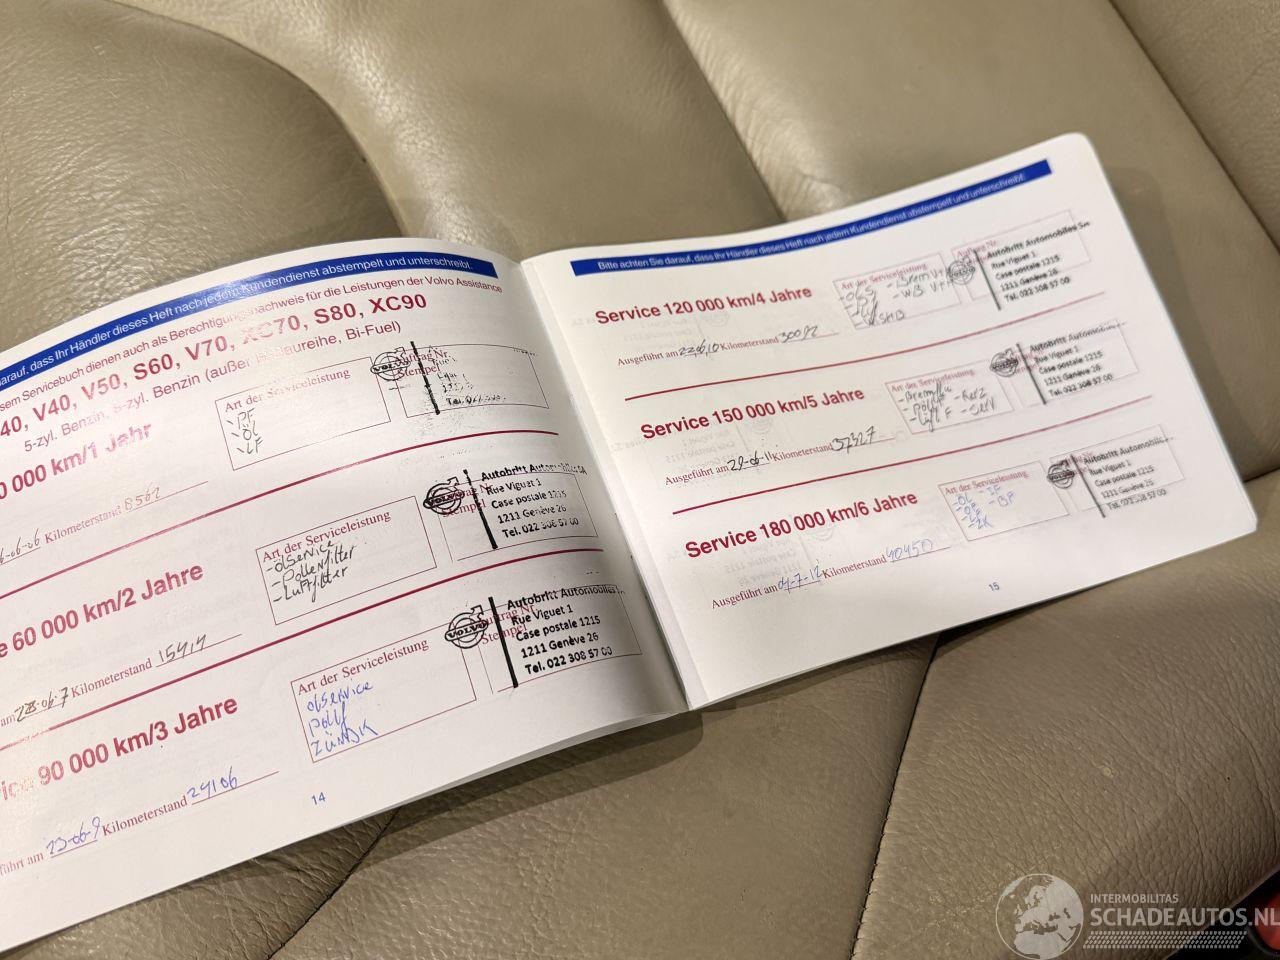 darauf, dass Ihr Händler dieses Heft nach jedem Kundendienst abstempelt und unterschreibt.
sem Servicebuch dienen auch als Berechtigungsnachweis für die Leistungen der Volvo Assistance
40, V40, V50, S60, V70, XC70, S80, XC90
5-zyl. Benzin, 5-zyl. Benzin (außer Bi-Fuel)
0 000 km/1 Jahr
Kilometerstand 8562
Art der Serviceleistung
- PF
- ÖL
- LF
Auftrag Nr.
Stempel
e 60 000 km/2 Jahre
am 28-06-7 Kilometerstand 15414
Art der Serviceleistung
- ölservice
- Pollenfilter
- Luftfilter
VOLVO
Autobritt Automobiles SA
Rue Viguet 1
Case postale 1215
1211 Genève 26
Tel. 022 308 57 00
90 000 km/3 Jahre
führt am 23-06-9 Kilometerstand 24106
Art der Serviceleistung
ölservice
Pollf
ZÜNDK
VOLVO
Auftrag Nr.
Stempel
Autobritt Automobiles
Rue Viguet 1
Case postale 1215
1211 Genève 26
Tel. 022 308 57 00
14
Bitte achten Sie darauf, dass Ihr Händler dieses Heft nach jedem Kundendienst abstempelt und unterschreibt.
Service 120 000 km/4 Jahre
Ausgeführt am 22.06.10 Kilometerstand 30092
Art der Serviceleistung
Autobritt Automobiles SA
Rue Viguet 1
Case postale 1215
1211 Genève 26
Tel. 022 308 57 00
Service 150 000 km/5 Jahre
Ausgeführt am 29-06-11 Kilometerstand 37327
Art der Serviceleistung
- Kerz
- Serv
Autobritt Automobiles
Rue Viguet 1
Case postale 1215
1211 Genève 26
Tel. 022 308 57 00
Service 180 000 km/6 Jahre
Ausgeführt am 04-7-12 Kilometerstand 40450
Art der Serviceleistung
- ÖL
- ÖF - BF
- LF
- ZK
Autobritt Automobiles
Rue Viguet 1
Case postale 1215
1211 Genève 26
Tel. 022 308 57 00
15
INTERMOBILITAS
SCHADEAUTOS.NL